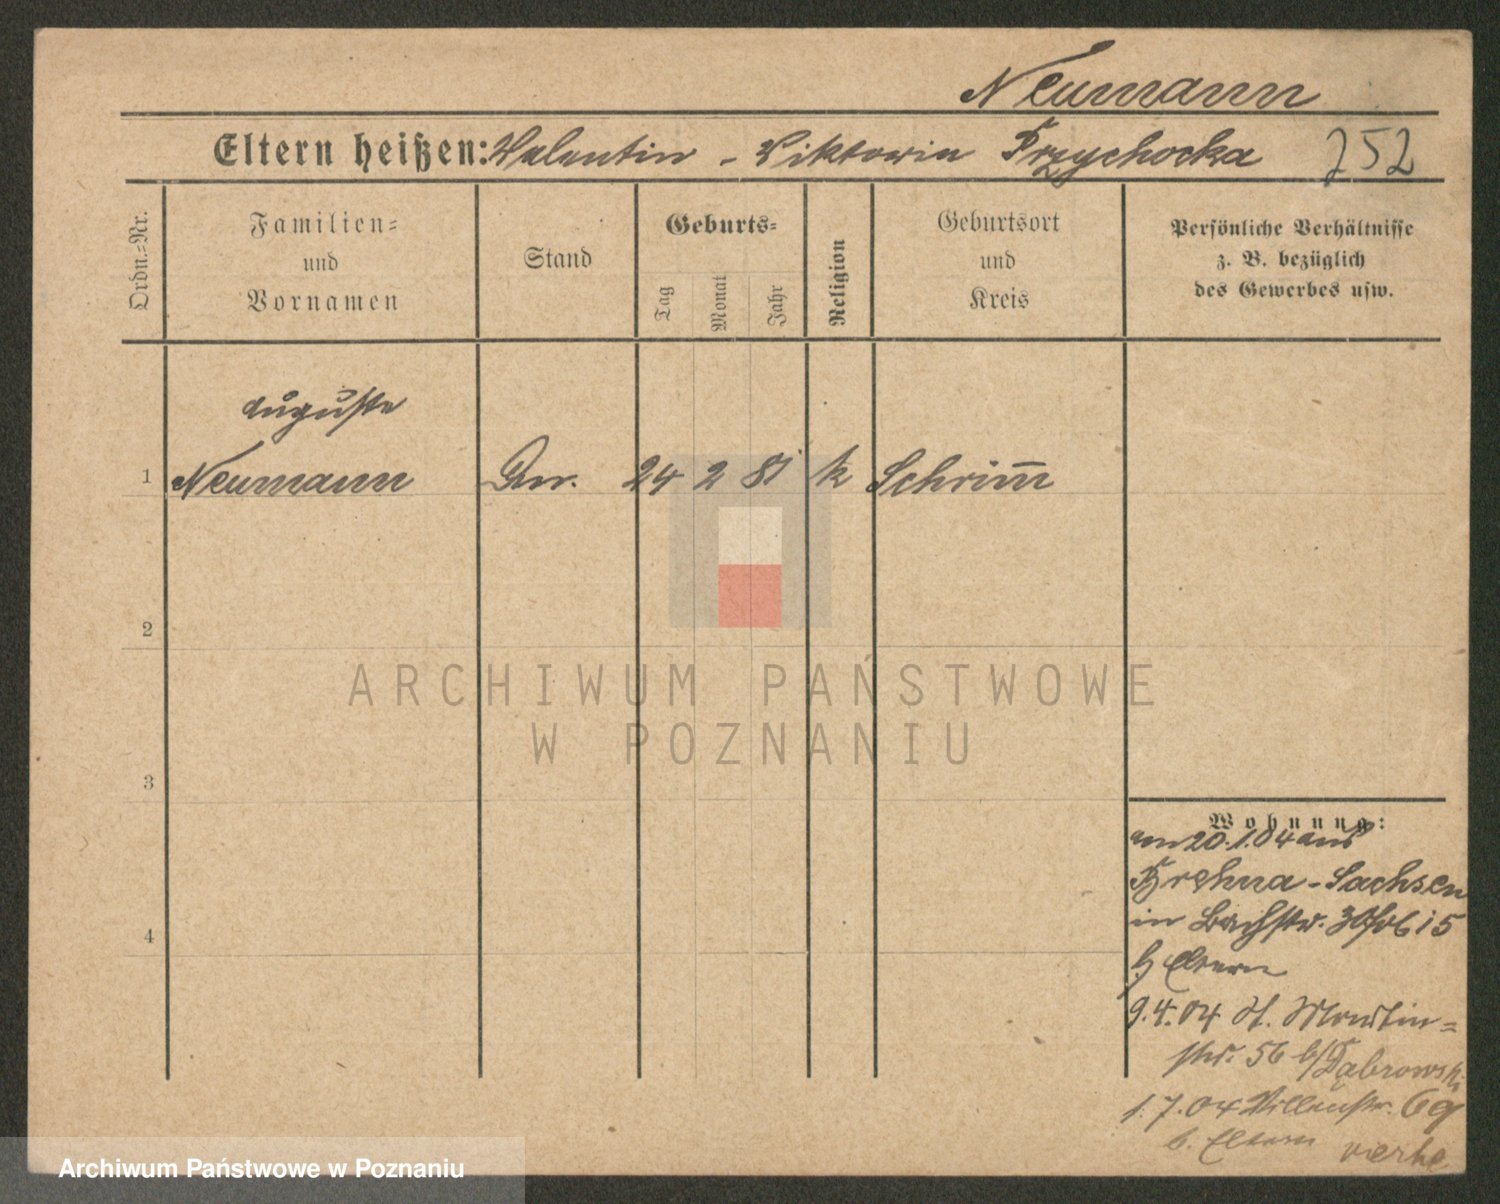 Neumann
Eltern heißen: Valentin - Viktoria Przychocka 252
Ordn.=Nr.
Familien=
und
Vornamen
Stand
Geburts=
Tag
Monat
Jahr
Religion
Geburtsort
und
Kreis
Persönliche Verhältnisse
z. B. bezüglich
des Gewerbes usw.
Auguste
1 Neumann 24 2 81 k Schrim̅
2
3
4
Wohnung:
am 20.1.04 aus
Brehna - Sachsen
in Bachstr.
b/ Eltern
9.4.04 St. Martin=
str. 56 b/ Dąbrowski
1.7.04
b. Eltern
ARCHIWUM PAŃSTWOWE
W POZNANIU
Archiwum Państwowe w Poznaniu